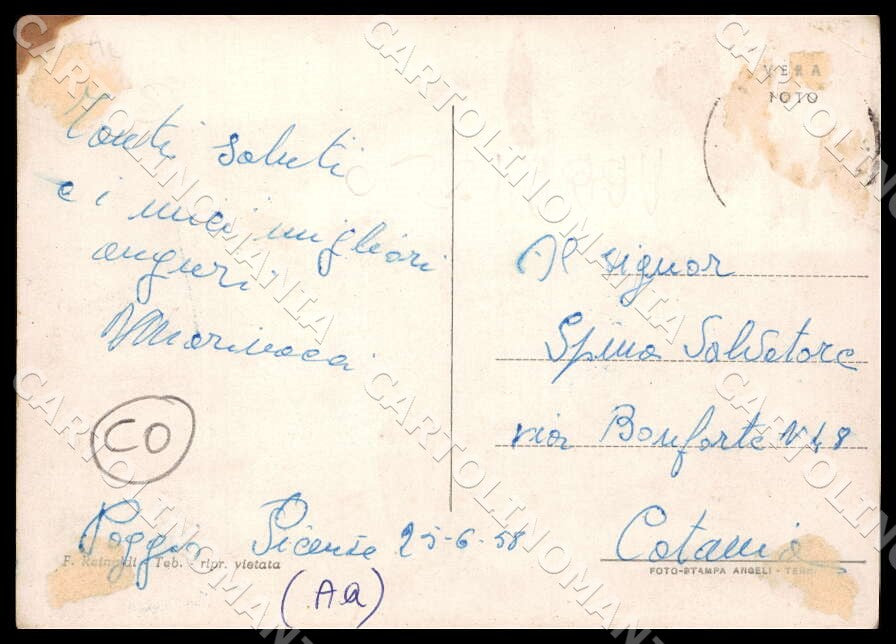 VERA
FOTO
Tanti saluti
e i miei migliori
auguri
Al signor
Spina Salvatore
via Bonforte N 48
Catania
CO
Poggio Picenze 25-6-58
Teb. - ripr. vietata
FOTO-STAMPA ANGELI - TERNI
(AQ)
CARTOLINOMANIA